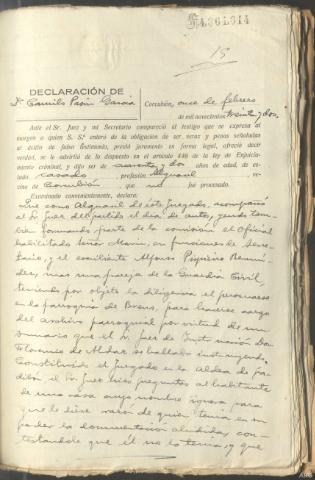 4.361.314
15
DECLARACIÓN DE
D. Camilo Pazin Garcia
Corcubión, once de febrero
de mil novecientos treinta y dos.
Ante el Sr. Juez y mi Secretario compareció el testigo que se expresa al
margen a quien S. Sª enteró de la obligación de ser veraz y penas señaladas
al delito de falso testimonio, prestó juramento en forma legal, ofreció decir
verdad, se le advirtió de lo dispuesto en el artículo 446 de la ley de Enjuicia-
miento criminal, y dijo ser de cuarenta y dos años de edad, de es-
tado casado, profesión Alguacil, ve-
cino de Corcubión, que no fué procesado.
Examinado convenientemente, declara:
Que como Alguacil de este Juzgado, acompañó
al Sr Juez del partido el dia de autos, yendo tam-
bien formando parte de la comisión el oficial
habilitado señor Marin, en funciones de Secre-
tario, y el escribiente Alfonso Piñeiro Bermú-
dez, mas una pareja de la Guardia Civil,
teniendo por objeto la diligencia el personarse
en la parroquia de Brens, para hacerse cargo
del archivo parroquial por virtud de un
sumario que el Sr Juez de Instrucción Don
de Aldar se hallaba instruyendo.
Constituido el Juzgado en la aldea de
el Sr Juez hizo preguntas al habitante
de una casa cuyo nombre ignora para
que le diese razon de quien tenia en su
poder la documentación aludida, con-
testandole que él no la tenia, y que